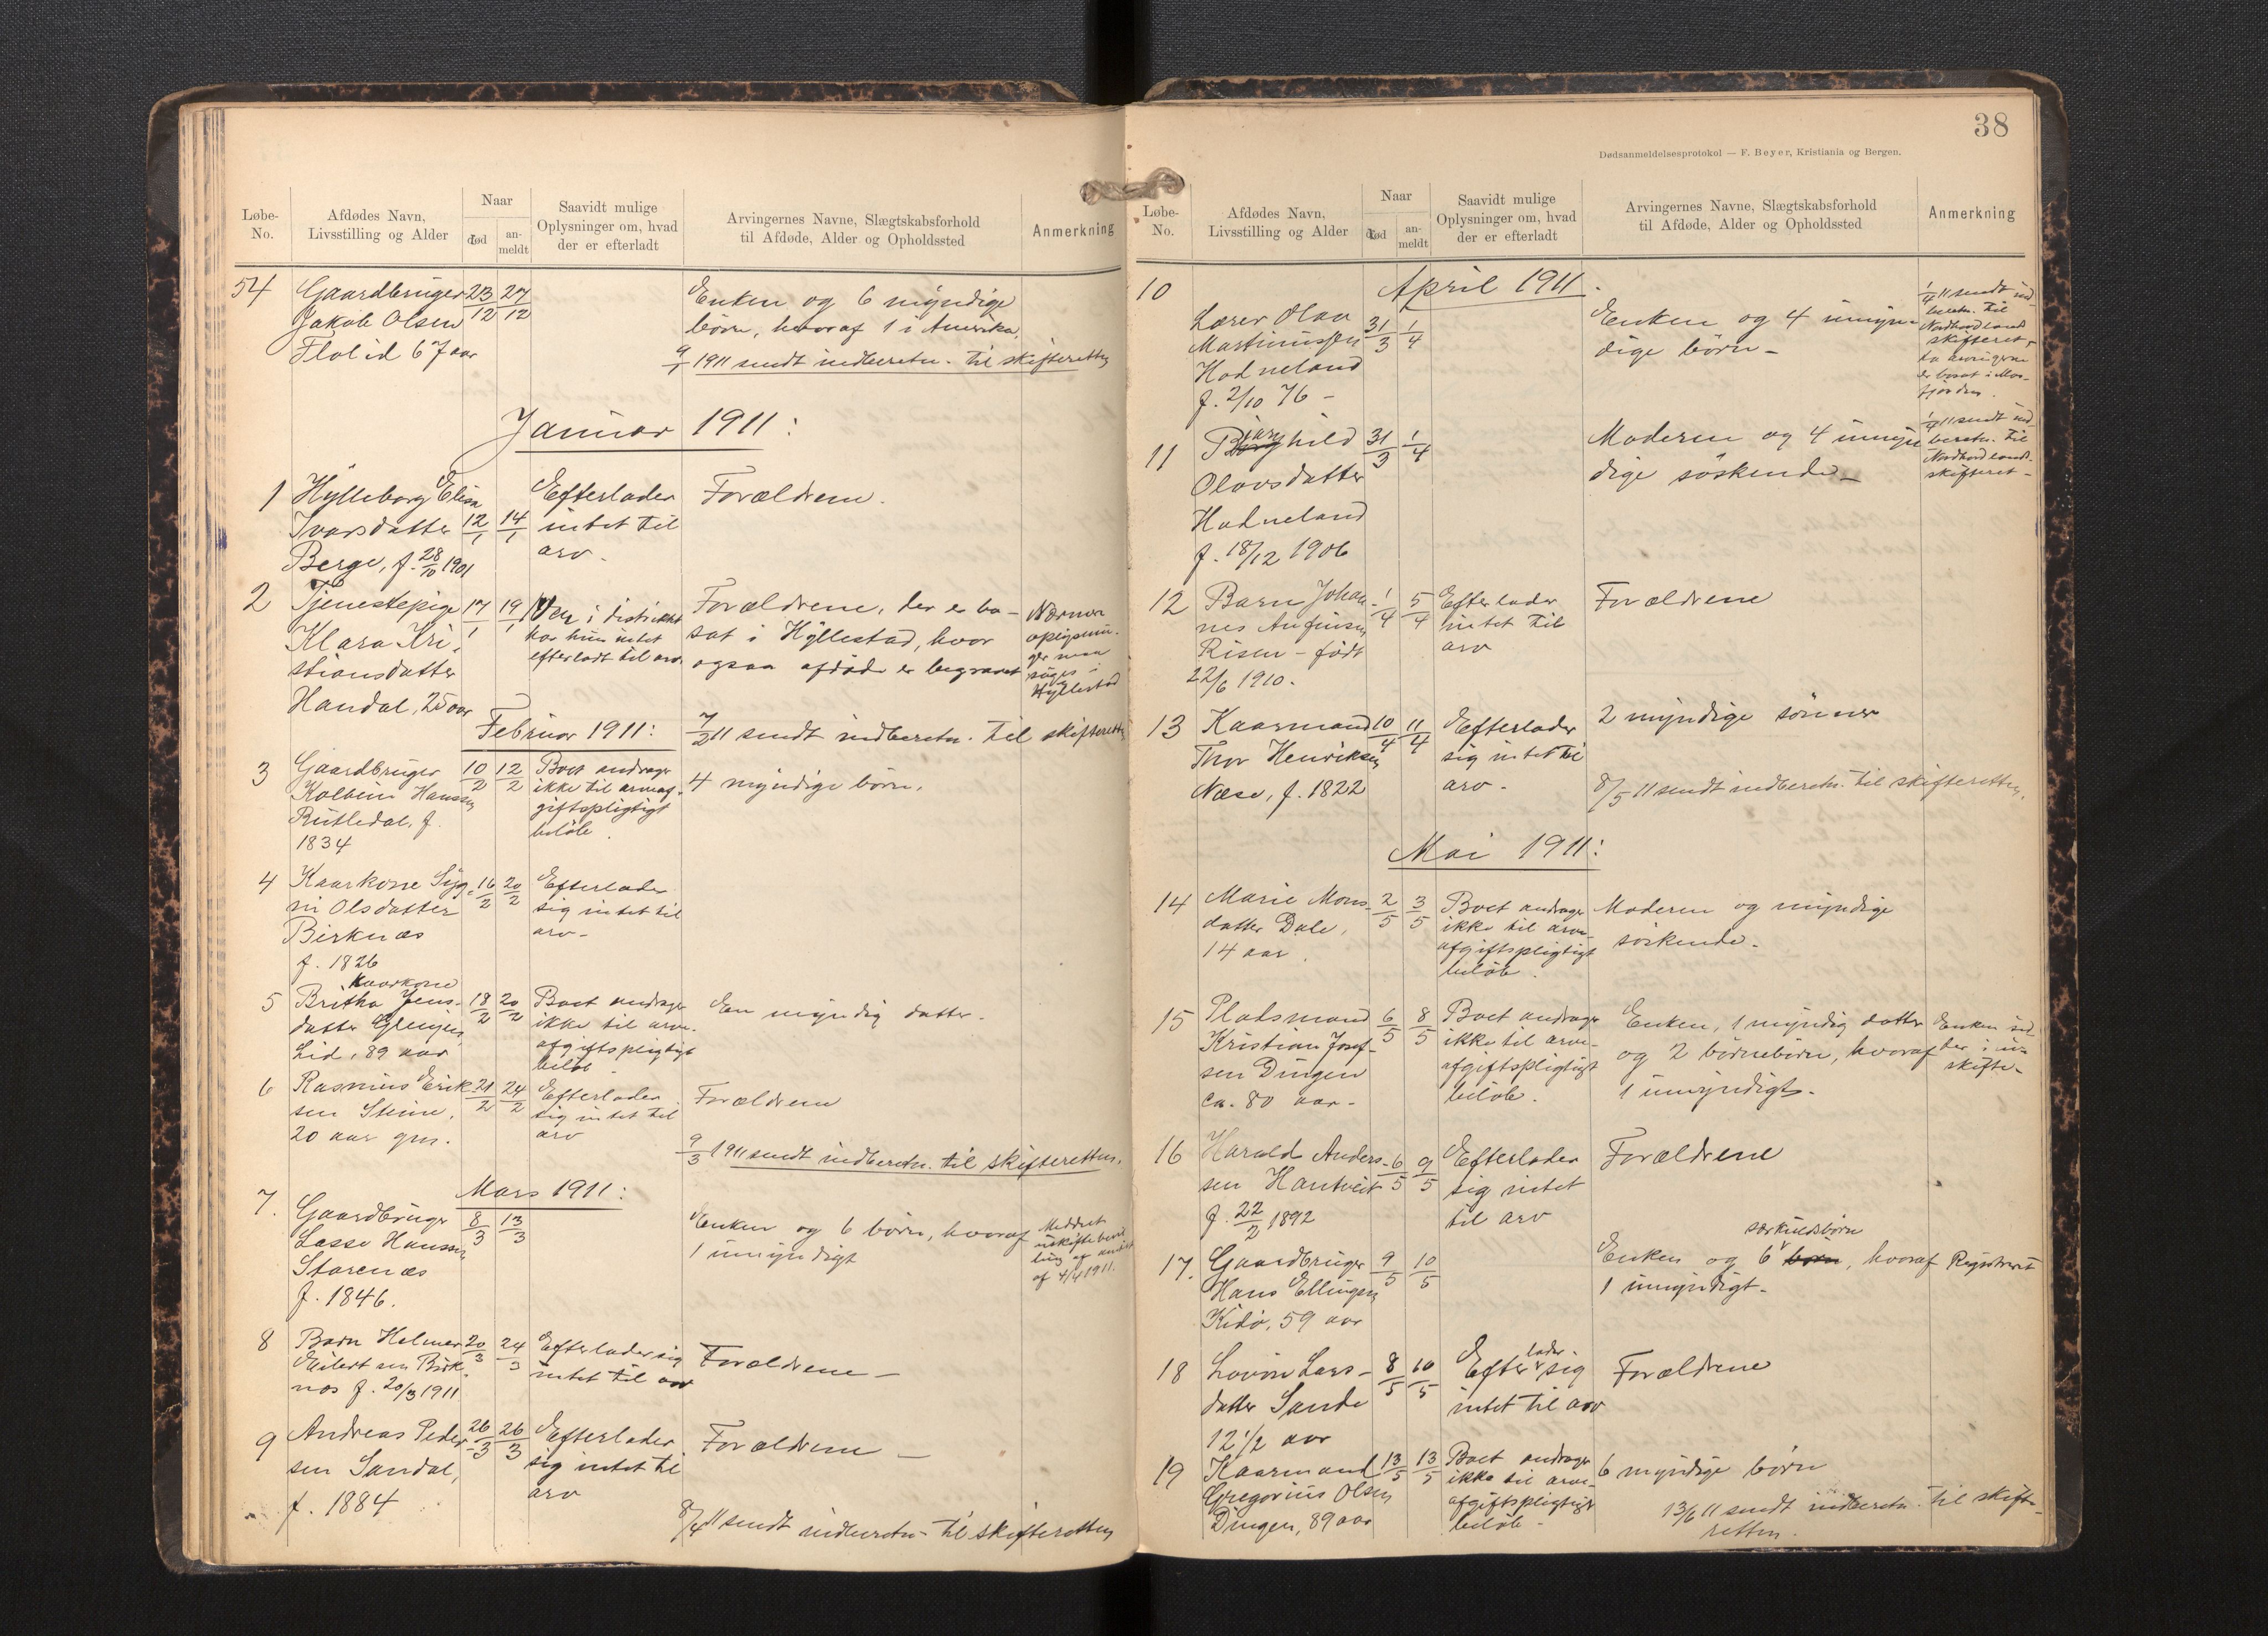 Løbe-
No.
Afdødes Navn,
Livsstilling og Alder
Naar
død
an-
meldt
Saavidt mulige
Oplysninger om, hvad
der er efterladt
Arvingernes Navne, Slægtskabsforhold
til Afdøde, Alder og Opholdssted
Anmerkning
54 Gaardbruger 23/12 27/12 Enken og 6 myndige
Jakob Olsen børn, hvoraf 1 i Amerika.
Flolid 67 aar 9/1 1911 sendt indberetn. til skifteretten
Januar 1911:
1 Hylleborg Elisa Efterlader Forældrene.
Ivarsdatter 12/1 14/1 intet til
Berge, f. 28/10 1901 arv.
2 Tjenestepige 17/1 19/1 Her i distriktet Forældrene, der er bo- Nærmere
Klara Kri- har hun intet sat i Hyllestad, hvor oplysnin-
stiansdatter efterladt til arv. ogsaa afdøde er begravet ger maa
Handal, 25 aar søges i
Hyllestad
Februar 1911: 7/2 11 sendt indberetn. til skifteretten
3 Gaardbruger 10/2 12/2 Boet andrager 4 myndige børn.
Kolbein Hanssen ikke til arveaf-
Rutledal, f. giftspligtigt
1834 beløb.
4 Kaarkone Sig- 16/2 20/2 Efterlader
ni Olsdatter sig intet til
Birknæs arv.
f. 1826
Kaarkone
5 Britha Jens- 18/2 20/2 Boet andrager En myndig datter.
datter ikke til arve-
Lid, 89 aar afgiftspligtigt
beløb
6 Rasmus Erik- 21/2 24/2 Efterlader Forældrene
sen Steine, sig intet til
20 aar gm. arv
9/3 1911 sendt indberetn. til skifteretten.
Mars 1911:
7. Gaardbruger 8/3 13/3 Enken og 6 børn, hvoraf Meddelt
Lasse Hanssen 1 umyndigt uskiftebevil-
Storenæs ling af
f. 1846. af 4/4 1911.
8 Barn Helmer 20/3 24/3 Efterlader sig Forældrene —
Eilertsen Birk- intet til arv
næs f. 20/3 1911
9 Andreas Peder- 26/3 26/3 Efterlader Forældrene —
sen Sandal, sig intet til
f. 1884 arv
8/4 11 sendt indberetn. til skifteretten
38
Dødsanmeldelsesprotokol — F. Beyer, Kristiania og Bergen.
Løbe-
No.
Afdødes Navn,
Livsstilling og Alder
Naar
død
an-
meldt
Saavidt mulige
Oplysninger om, hvad
der er efterladt
Arvingernes Navne, Slægtskabsforhold
til Afdøde, Alder og Opholdssted
Anmerkning
April 1911.
10 Lærer Olav 31/3 1/4 Enken og 4 umyn- 1/4 11 sendt ind-
Martinussen dige børn — beretn. til
Hodneland Nordhordland
f. 2/10 76 — skifteret,
da arvingerne
er bosat i Mas-
fjorden.
11 Borghild 31/3 1/4 Moderen og 4 umyn- 1/4 11 sendt ind-
Olavsdatter dige søskende — beretn. til
Hodneland Nordhordland.
f. 18/12 1906 skifteret —
12 Barn Johan- 1/4 5/4 Efterlader Forældrene
nes Anfinsen intet til
Risen — født arv
22/6 1910.
13 Kaarmand 10/4 11/4 Efterlader 2 myndige sønner
Thor Henriksen sig intet til
Næse, f. 1822 arv. 8/5 11 sendt indberetn. til skifteretten.
Mai 1911:
14 Marie Mons- 2/5 3/5 Boet andrager Moderen og myndige
datter Dale, ikke til arve- søskende.
14 aar. afgiftspligtigt
beløb.
15 Pladsmand 6/5 8/5 Boet andrager Enken, 1 myndig datter Enken sid-
Kristian Josef- ikke til arve- og 2 børnebørn, hvoraf der i u-
sen Dingen afgiftspligtigt 1 umyndigt. skifte.
ca. 80 aar. beløb.
16 Harald Anders- 6/5 9/5 Efterlader Forældrene
sen Hantveit sig intet
f. 22/2 1892 til arv
særkuldsbørn
17. Gaardbruger 9/5 10/5 Enken og 6 børn, hvoraf Registreret
Hans Ellingsen 1 umyndigt.
Kidø, 59 aar
18 Lovise Lars- 8/5 10/5 Efterlader sig Forældrene
datter Sande intet til arv
12 1/2 aar
19 Kaarmand 13/5 13/5 Boet andrager 6 myndige børn
Gregorius Olsen ikke til arve-
Dingen, 89 aar afgiftspligtigt
beløb.
13/6 11 sendt indberetn. til skifte-
retten.